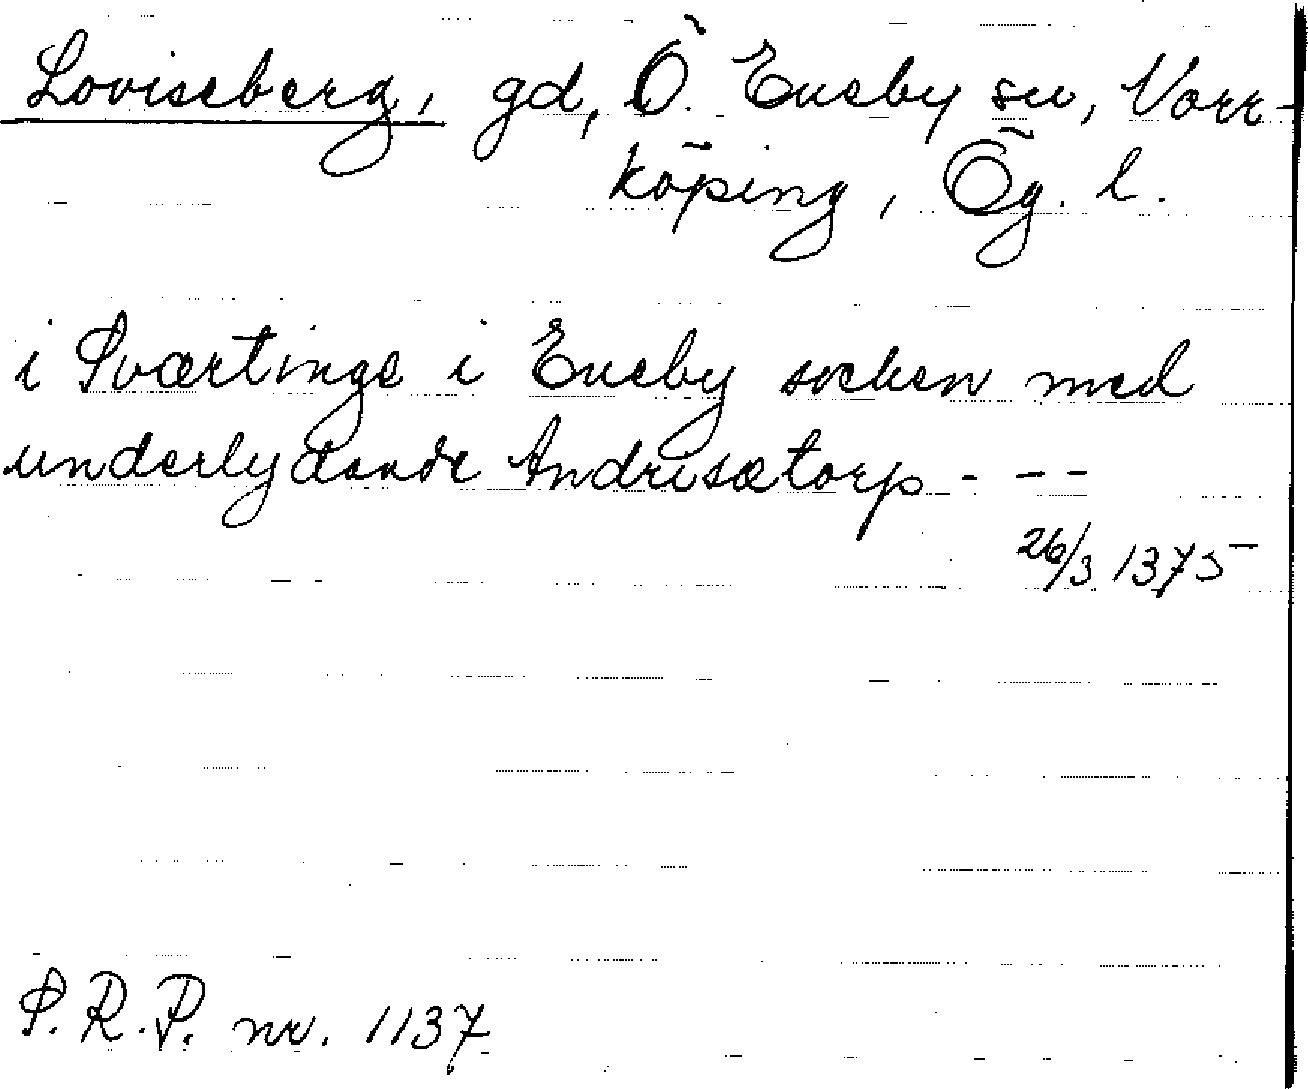 Loviseberg, gd, Ö. Eneby sn, Norr-
köping, Ög. l.
i Swærtinge i Eneby socken med
underlydande Andrisætorp - - -
26/3 1375
S.R.P. nr. 1137